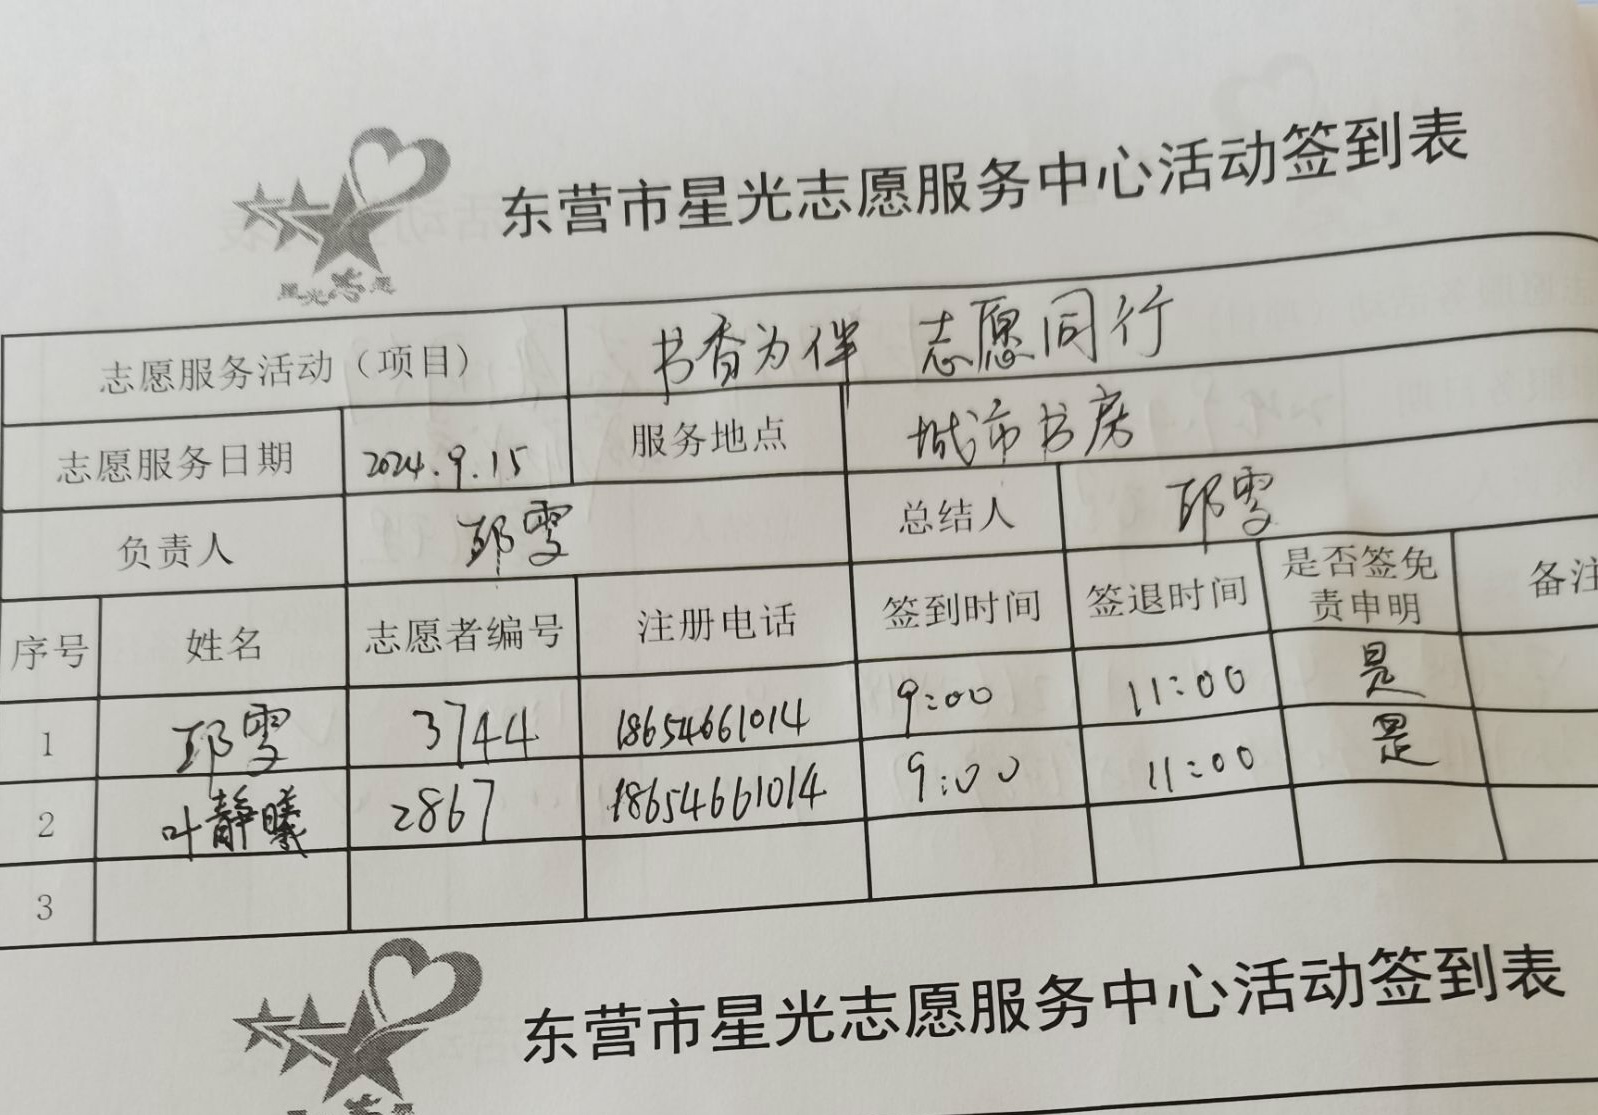 东营市星光志愿服务中心活动签到表
星光志愿
志愿服务活动（项目） 书香为伴 志愿同行
志愿服务日期 2024.9.15 服务地点 城市书房
负责人 邱雯 总结人 邱雯
序号 姓名 志愿者编号 注册电话 签到时间 签退时间 是否签免责申明 备注
1 邱雯 3744 18654661014 9:00 11:00 是
2 叶静曦 2867 18654661014 9:00 11:00 是
3
东营市星光志愿服务中心活动签到表